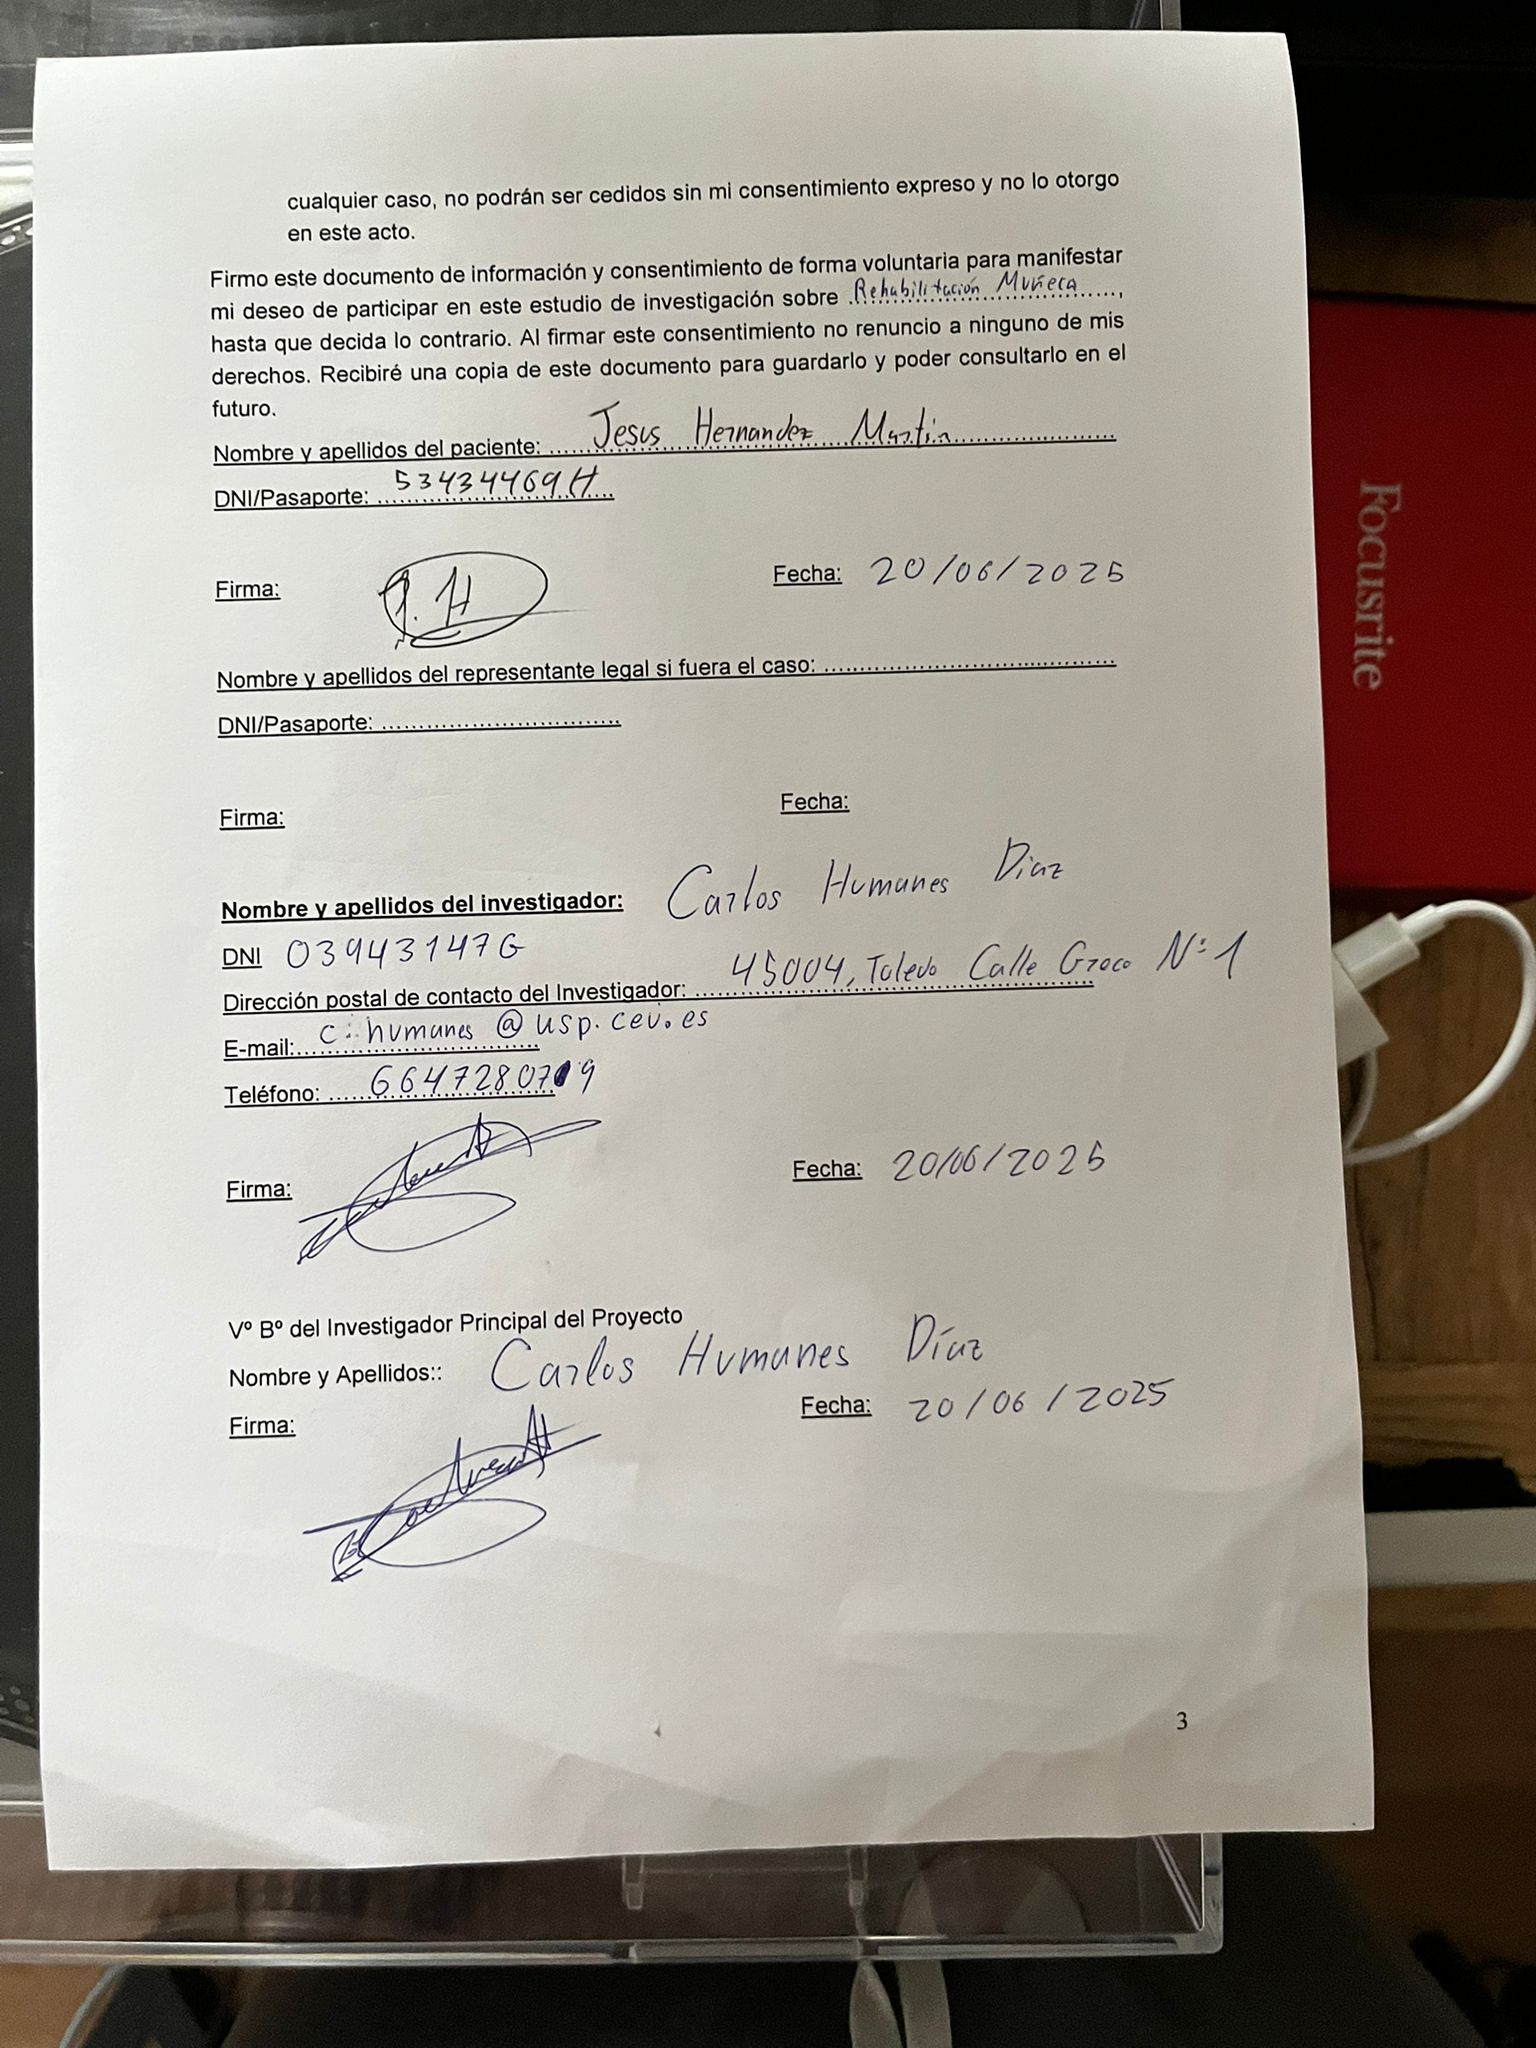 cualquier caso, no podrán ser cedidos sin mi consentimiento expreso y no lo otorgo
en este acto.
Firmo este documento de información y consentimiento de forma voluntaria para manifestar
mi deseo de participar en este estudio de investigación sobre Rehabilitación Muñeca,
hasta que decida lo contrario. Al firmar este consentimiento no renuncio a ninguno de mis
derechos. Recibiré una copia de este documento para guardarlo y poder consultarlo en el
futuro.
Nombre y apellidos del paciente: Jesus Hernandez Martin
DNI/Pasaporte: 53434469H
Firma: J.H Fecha: 20/06/2025
Nombre y apellidos del representante legal si fuera el caso:
DNI/Pasaporte:
Firma: Fecha:
Nombre y apellidos del investigador: Carlos Humanes Diaz
DNI 03943147G
Dirección postal de contacto del Investigador: 45004, Toledo Calle Greco Nº 1
E-mail: c.humanes@usp.ceu.es
Teléfono:
Firma: Fecha: 20/06/2025
Vº Bº del Investigador Principal del Proyecto
Nombre y Apellidos:: Carlos Humanes Díaz
Firma: Fecha: 20/06/2025
3
Focusrite